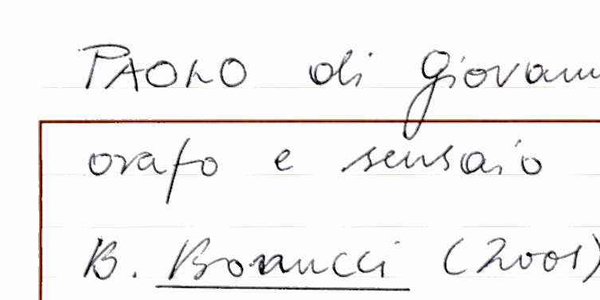 PAOLO di Giovann
orafo e sensaio
B. Boraucci (2001)